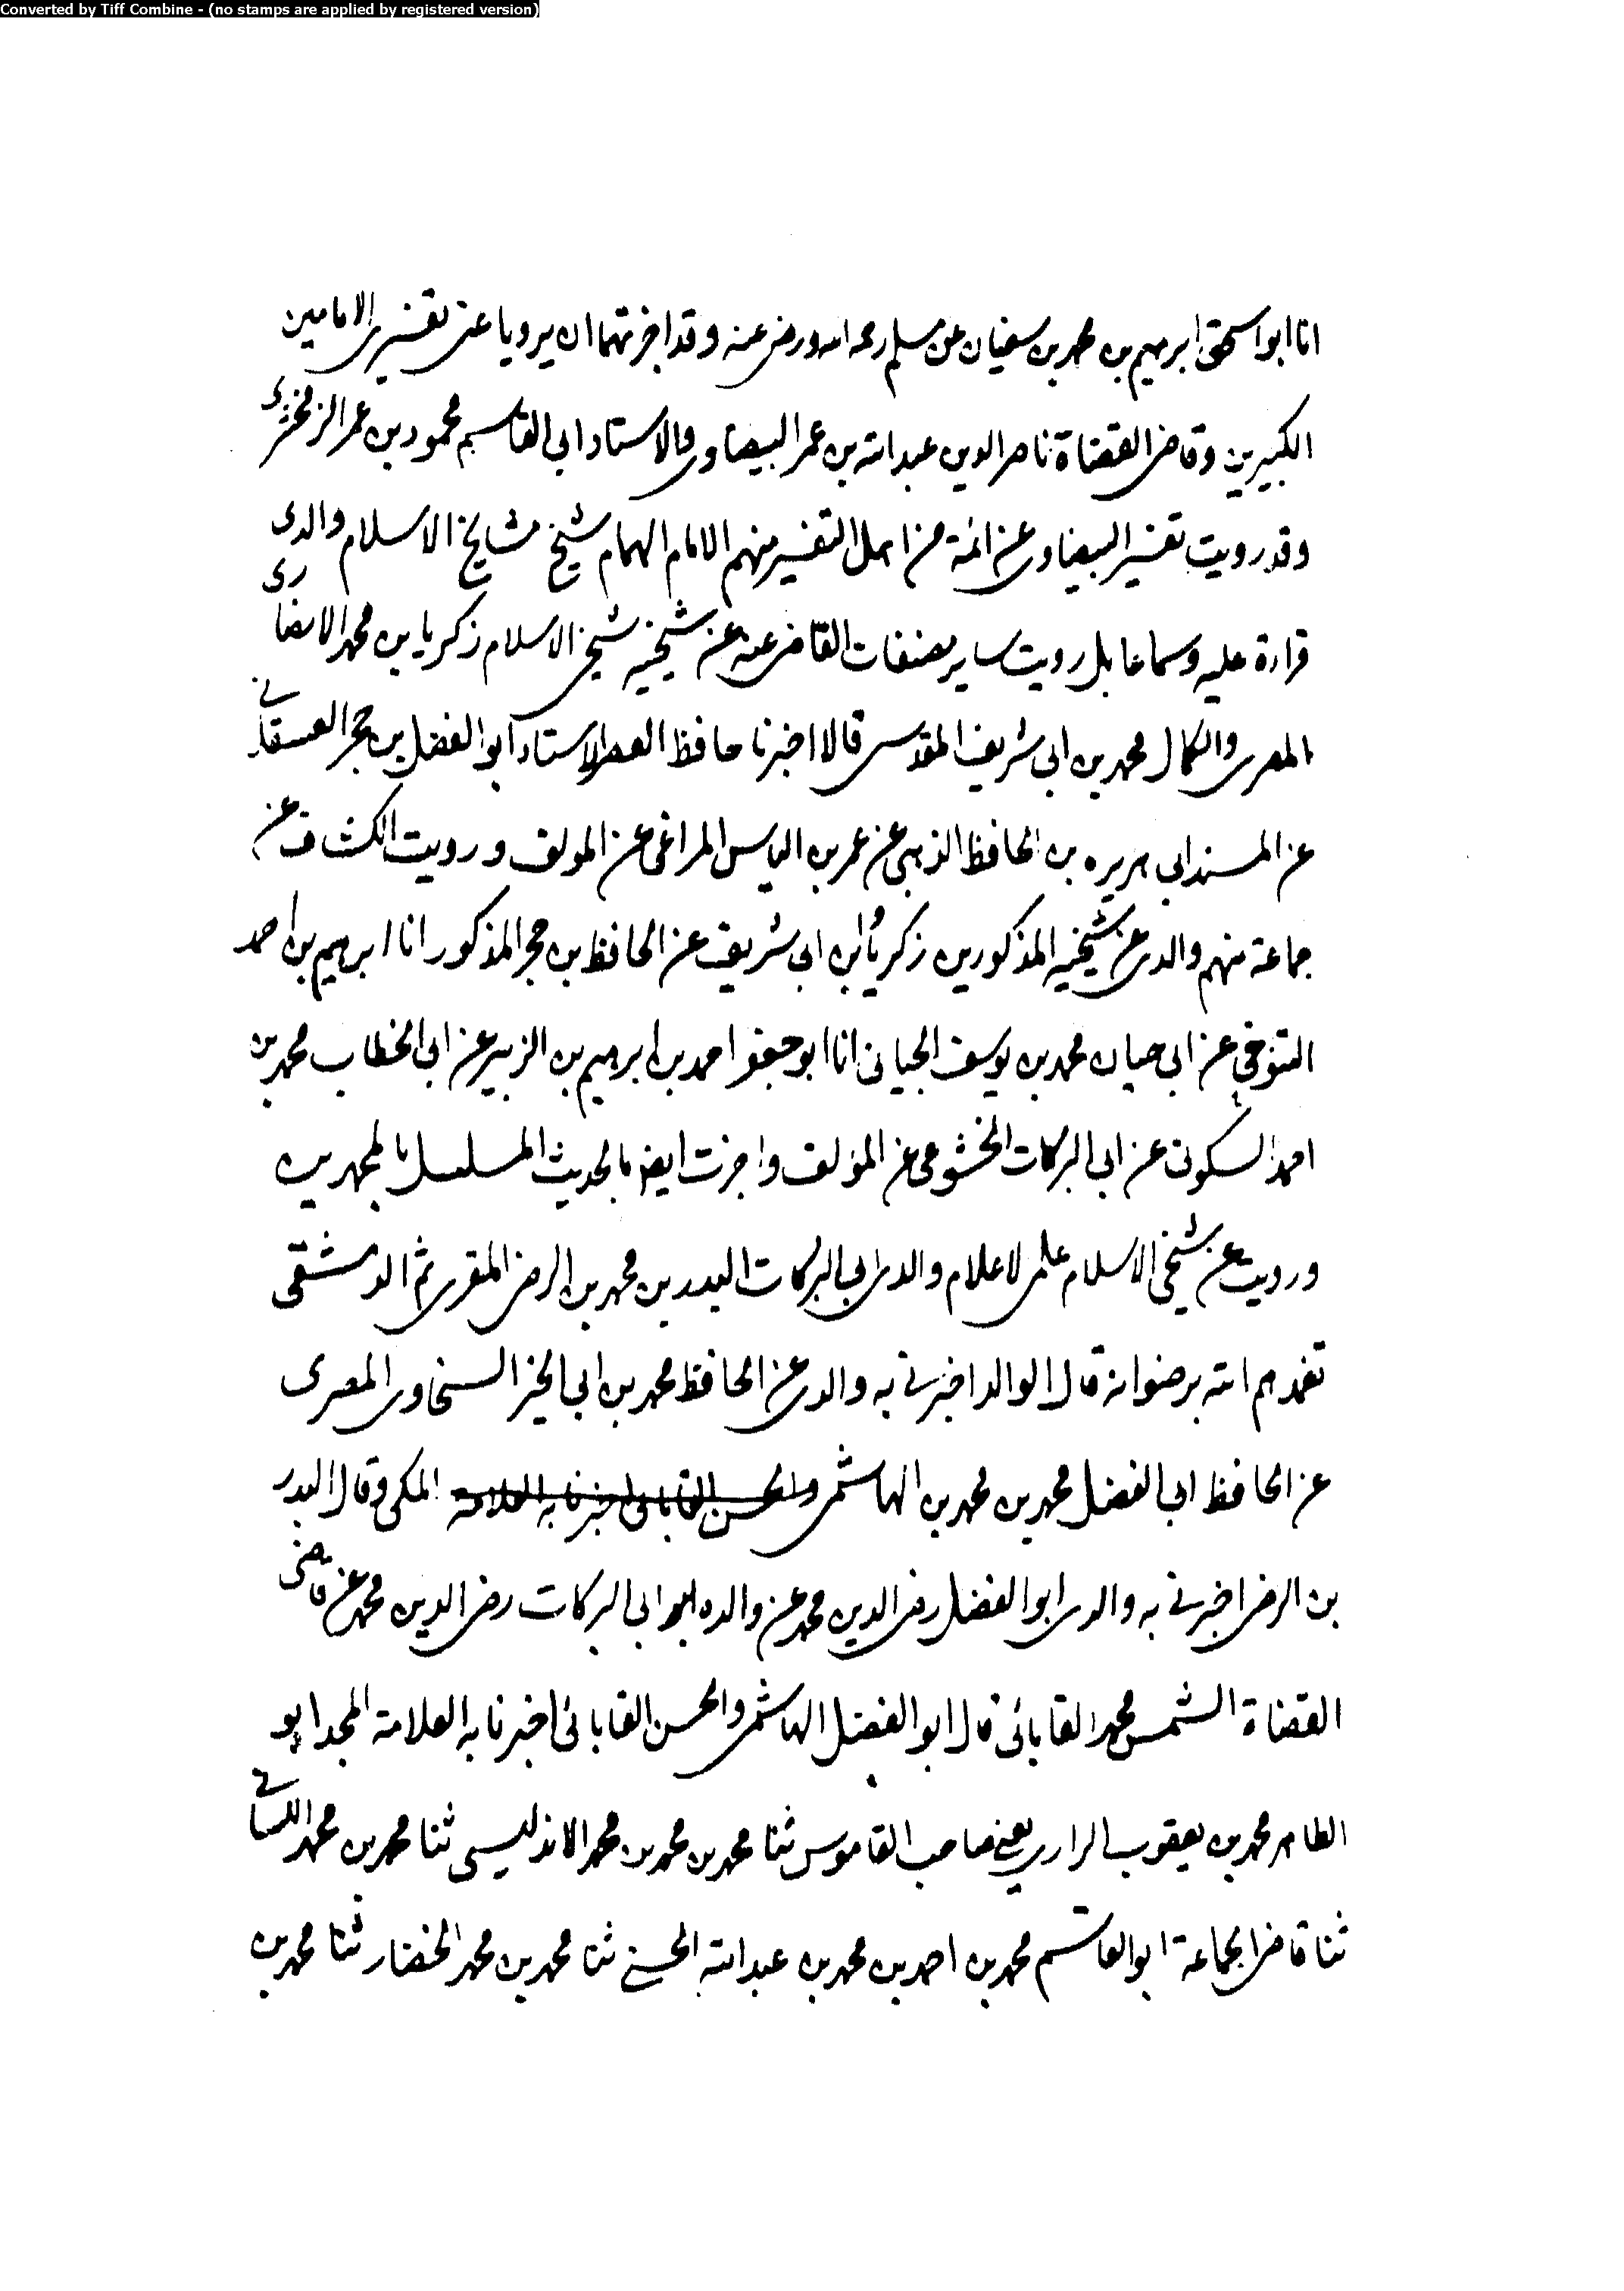 Converted by Tiff Combine - (no stamps are applied by registered version)
انا ابو اسحق ابرهيم بن محمد بن سفيان عن مسلم رحمه الله ورضى عنه وقد اجزتهما ان يرويا عنى تفسيرى الامامين
الكبيرين وقاضى القضاة ناصر الدين عبد الله بن عمر البيضاوى والاستاد ابى القاسم محمود بن عمر الزمخشرى
وقد رويت تفسير البيضاوى عن ائمة من اهل التفسير منهم الامام الهمام شيخ مشايخ الاسلام والدى
قراءة عليه وسماعا بل رويت ساير مصنفات القاضى عنه عن شيخيه شيخى الاسلام زكريا بن محمد الانصارى
المصرى والكمال محمد بن ابى شريف المقدسى قالا اخبرنا حافظ العصر الاستاد ابو الفضل بن حجر العسقلانى
عن المسند ابى هريره بن الحافظ الذهبى عن عمر بن الياس المراغى عن المولف ورويت الكشاف عن
جماعة منهم والدى عن شيخيه المذكورين زكريا وابن ابى شريف عن الحافظ بن حجر المذكور انا ابرهيم بن احمد
التنوخى عن ابى حيان محمد بن يوسف الجيانى انا ابو جعفر احمد بن ابرهيم بن الزبير عن ابى الخطاب محمد بن
احمد السكونى عن ابى البركات الخشوعى عن المؤلف واجزت ايضا بالحديث المسلسل بالمحمدين
ورويت عن شيخى الاسلام علمى الاعلام والدى ابى البركات البدر بن محمد بن الرضى المقرى ثم الدمشقى
تغمدهم الله برضوانه قال الوالد اخبرنى به والدى عن الحافظ محمد بن ابى الخير السخاوى المصرى
عن الحافظ ابى الفضل محمد بن محمد بن الهاشمى والحسن القاياتى اخبرنا به العلامة المكى وقال البدر
بن الرضى اخبرنى به والدى ابو الفضل رضى الدين محمد عن والده ابى البركات رضى الدين محمد عن قاضى
القضاة الشمس محمد القاياتى قال ابو الفضل الهاشمى والحسن القاياتى اخبرنا به العلامة المجد ابو
الطاهر محمد بن يعقوب الرازى يعنى صاحب القاموس ثنا محمد بن محمد بن محمد الاندليسى ثنا محمد بن محمد
ثنا قاضى الجماعة ابو القاسم محمد بن احمد بن محمد بن عبد الله الحسنى ثنا محمد بن محمد الحضار ثنا محمد بن